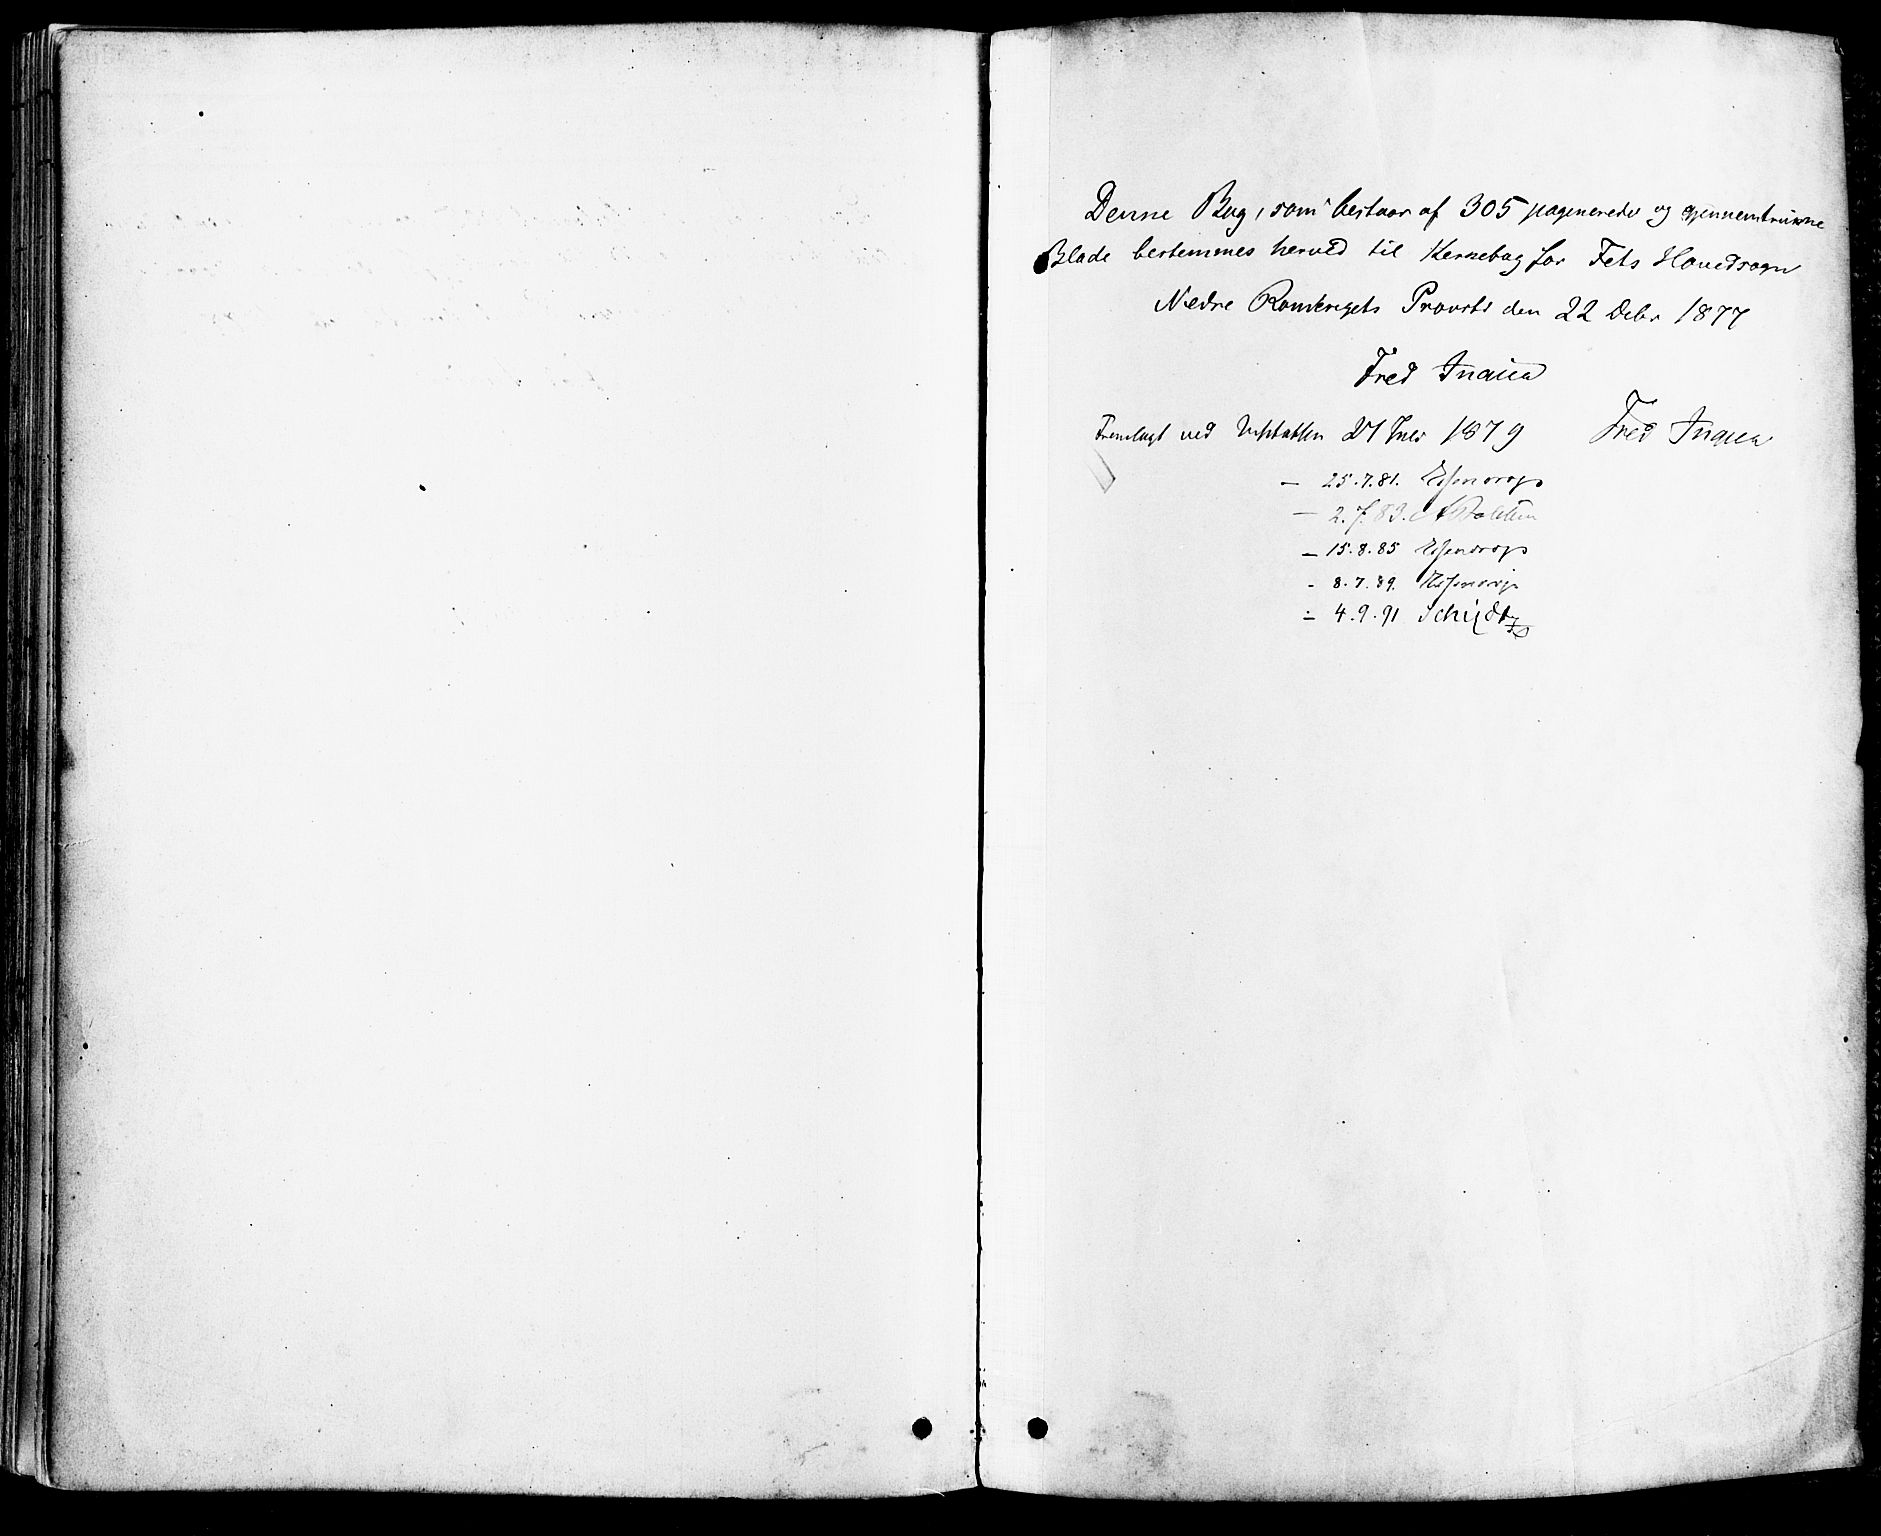 Denne Bog, som bestaar af 305 paginerede og gjennemtrukne
Blade bestemmes herved til Kirkebog for Fets Hovedsogn
Nedre Romerigets Provsti den 22 Debr 1877
Fred
Fremlagt ved Visitatsen 27 1879 Fred
— 25.7.81. Essendrop
— 2.7.83.
— 15.8.85 Essendrop
- 8.7.89. Essendrop
- 4.9.91